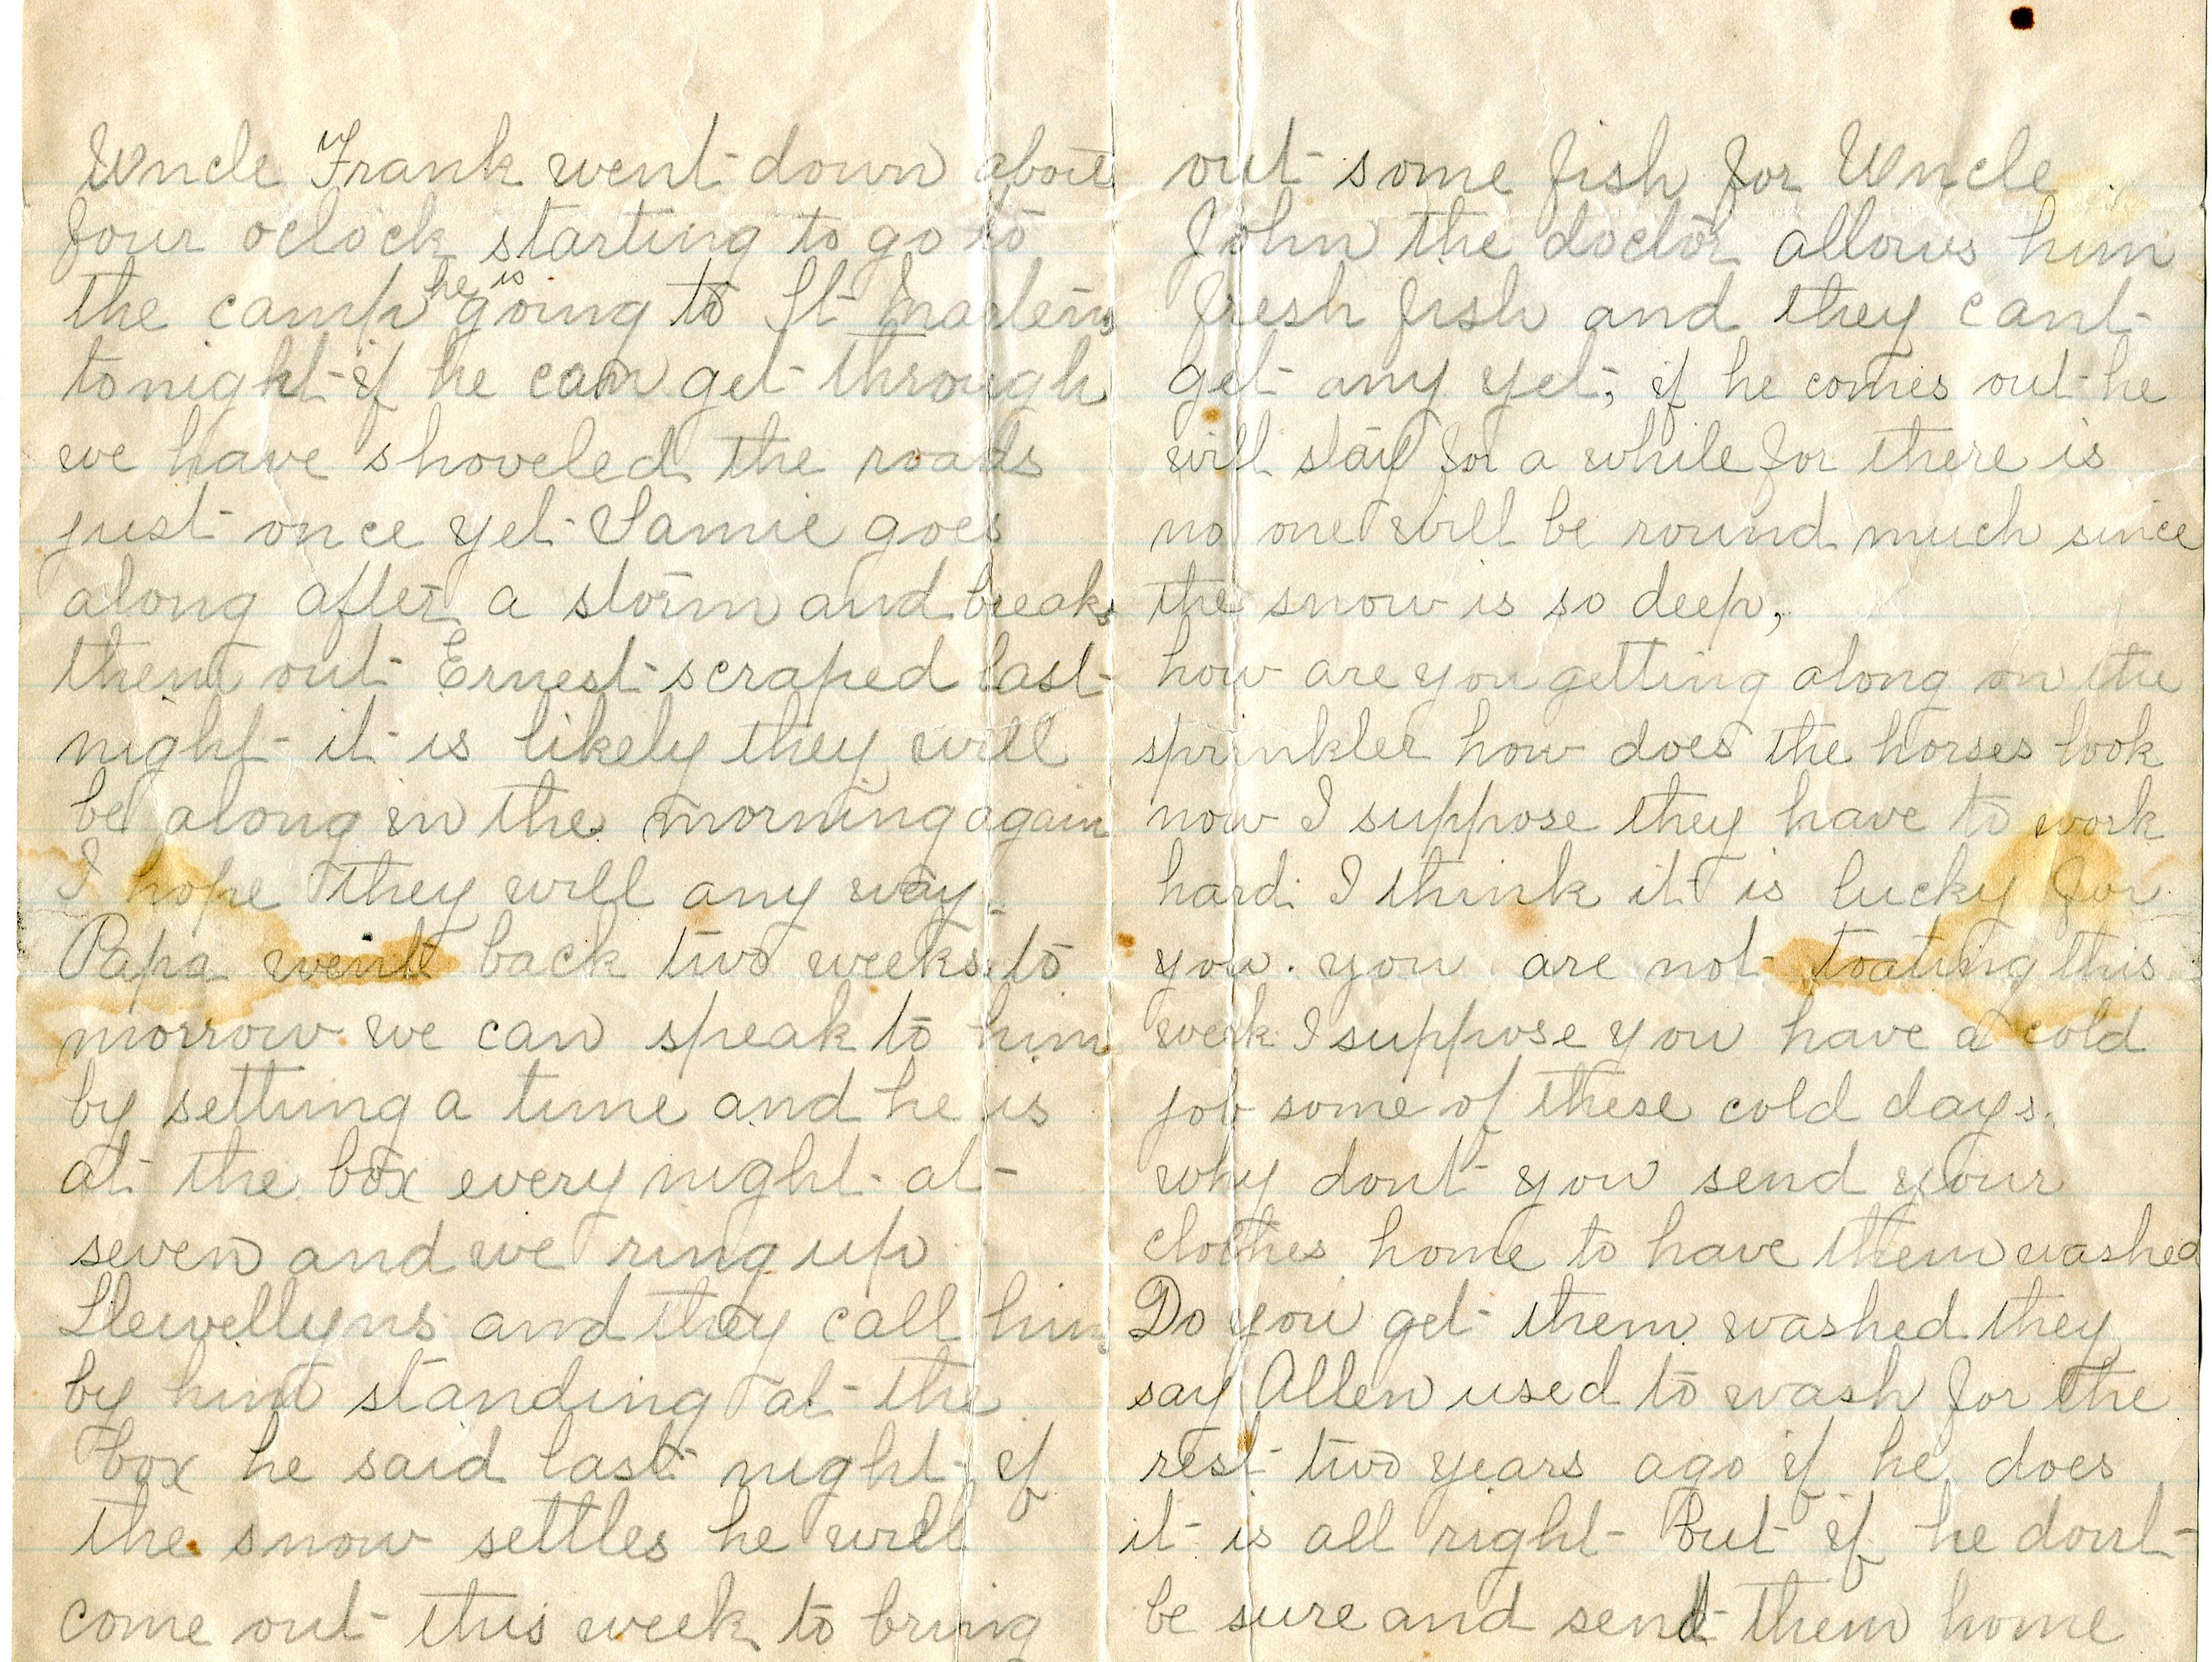 Uncle Frank went down about
four oclock starting to go to
the camp he is going to St
tonight if he can get through
we have shoveled the roads
just once yet Samie goes
along after a storm and breaks
them out Ernest scraped last
night it is likely they will
be along in the morning again
I hope they will any way.
Papa went back two weeks to
morrow we can speak to him
by setting a time and he is
at the box every night at
seven and we ring up
Llewellyns and they call him
by him standing at the
box he said last night if
the snow settles he will
come out this week to bring
out some fish for Uncle
John the doctor allows him
fresh fish and they cant
get any yet, if he comes out he
will stay for a while for there is
no one will be round much since
the snow is so deep,
how are you getting along on the
sprinkler how does the horses look
now I suppose they have to work
hard. I think it is lucky for
you. you are not toating this
week I suppose you have a cold
job some of these cold days.
why dont you send your
clothes home to have them washed
Do you get them washed they
say Allen used to wash for the
rest two years ago if he does
it is all right But if he dont
be sure and send them home